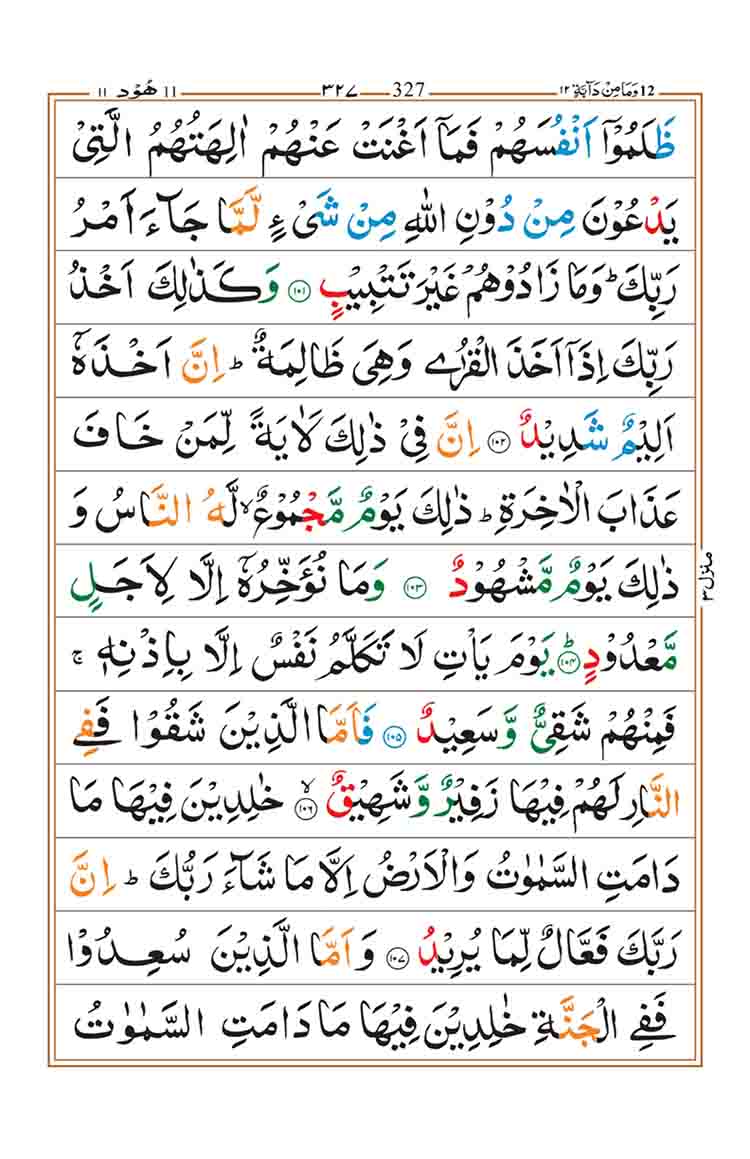 12 وَمَا مِنْ دَآبَّةٍ ١٢ 327 ٣٢٧ 11 هُوْد ١١
ظَلَمُوْٓا اَنْفُسَهُمْ فَمَآ اَغْنَتْ عَنْهُمْ اٰلِهَتُهُمُ الَّتِيْ
يَدْعُوْنَ مِنْ دُوْنِ اللّٰهِ مِنْ شَيْءٍ لَّمَّا جَآءَ اَمْرُ
رَبِّكَ ؕ وَمَا زَادُوْهُمْ غَيْرَ تَتْبِيْبٍ ۝١٠١ وَكَذٰلِكَ اَخْذُ
رَبِّكَ اِذَآ اَخَذَ الْقُرٰے وَهِيَ ظَالِمَةٌ ؕ اِنَّ اَخْذَهٗٓ
اَلِيْمٌ شَدِيْدٌ ۝١٠٢ اِنَّ فِيْ ذٰلِكَ لَاٰيَةً لِّمَنْ خَافَ
عَذَابَ الْاٰخِرَةِ ؕ ذٰلِكَ يَوْمٌ مَّجْمُوْعٌ ۙ لَّهُ النَّاسُ وَ
ذٰلِكَ يَوْمٌ مَّشْهُوْدٌ ۝١٠٣ وَمَا نُؤَخِّرُهٗٓ اِلَّا لِاَجَلٍ
مَّعْدُوْدٍ ؕ ۝١٠٤ يَوْمَ يَاْتِ لَا تَكَلَّمُ نَفْسٌ اِلَّا بِاِذْنِهٖ ۚ
فَمِنْهُمْ شَقِيٌّ وَّسَعِيْدٌ ۝١٠٥ فَاَمَّا الَّذِيْنَ شَقُوْا فَفِے
النَّارِ لَهُمْ فِيْهَا زَفِيْرٌ وَّشَهِيْقٌ ۙ ۝١٠٦ خٰلِدِيْنَ فِيْهَا مَا
دَامَتِ السَّمٰوٰتُ وَالْاَرْضُ اِلَّا مَا شَآءَ رَبُّكَ ؕ اِنَّ
رَبَّكَ فَعَّالٌ لِّمَا يُرِيْدُ ۝١٠٧ وَاَمَّا الَّذِيْنَ سُعِدُوْا
فَفِے الْجَنَّةِ خٰلِدِيْنَ فِيْهَا مَا دَامَتِ السَّمٰوٰتُ
منزل ٣